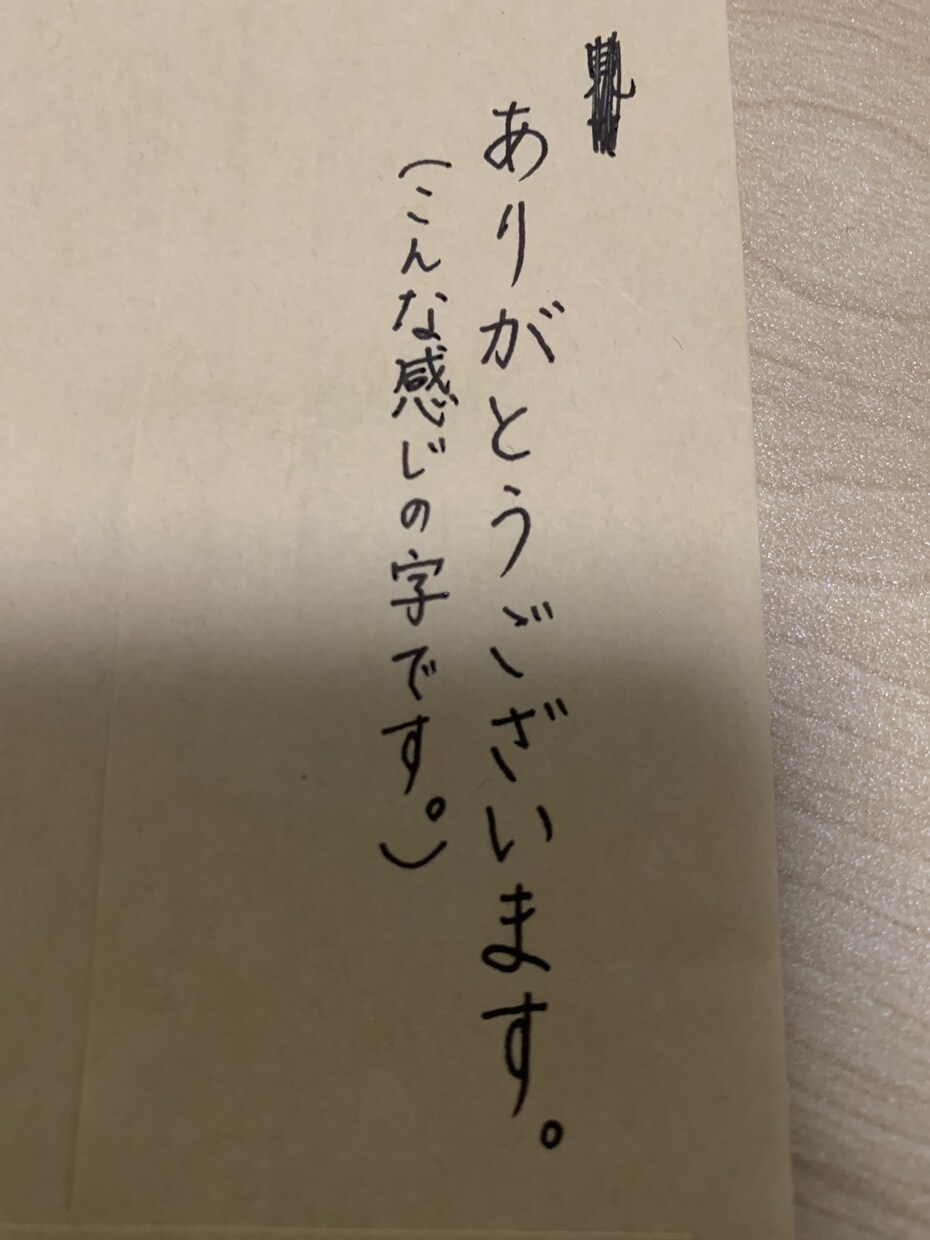 ありがとうございます。
(こんな感じの字です。)